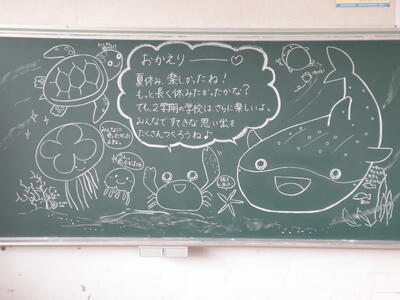 おかえり――♡
夏休み、楽しかったね！
もっと長く休みたかったかな？
でも、2学期の学校は、さらに楽しいよ。
みんなで すてきな 思い出を
たくさんつくろうね♪
みんなに
会いたかった
よね。